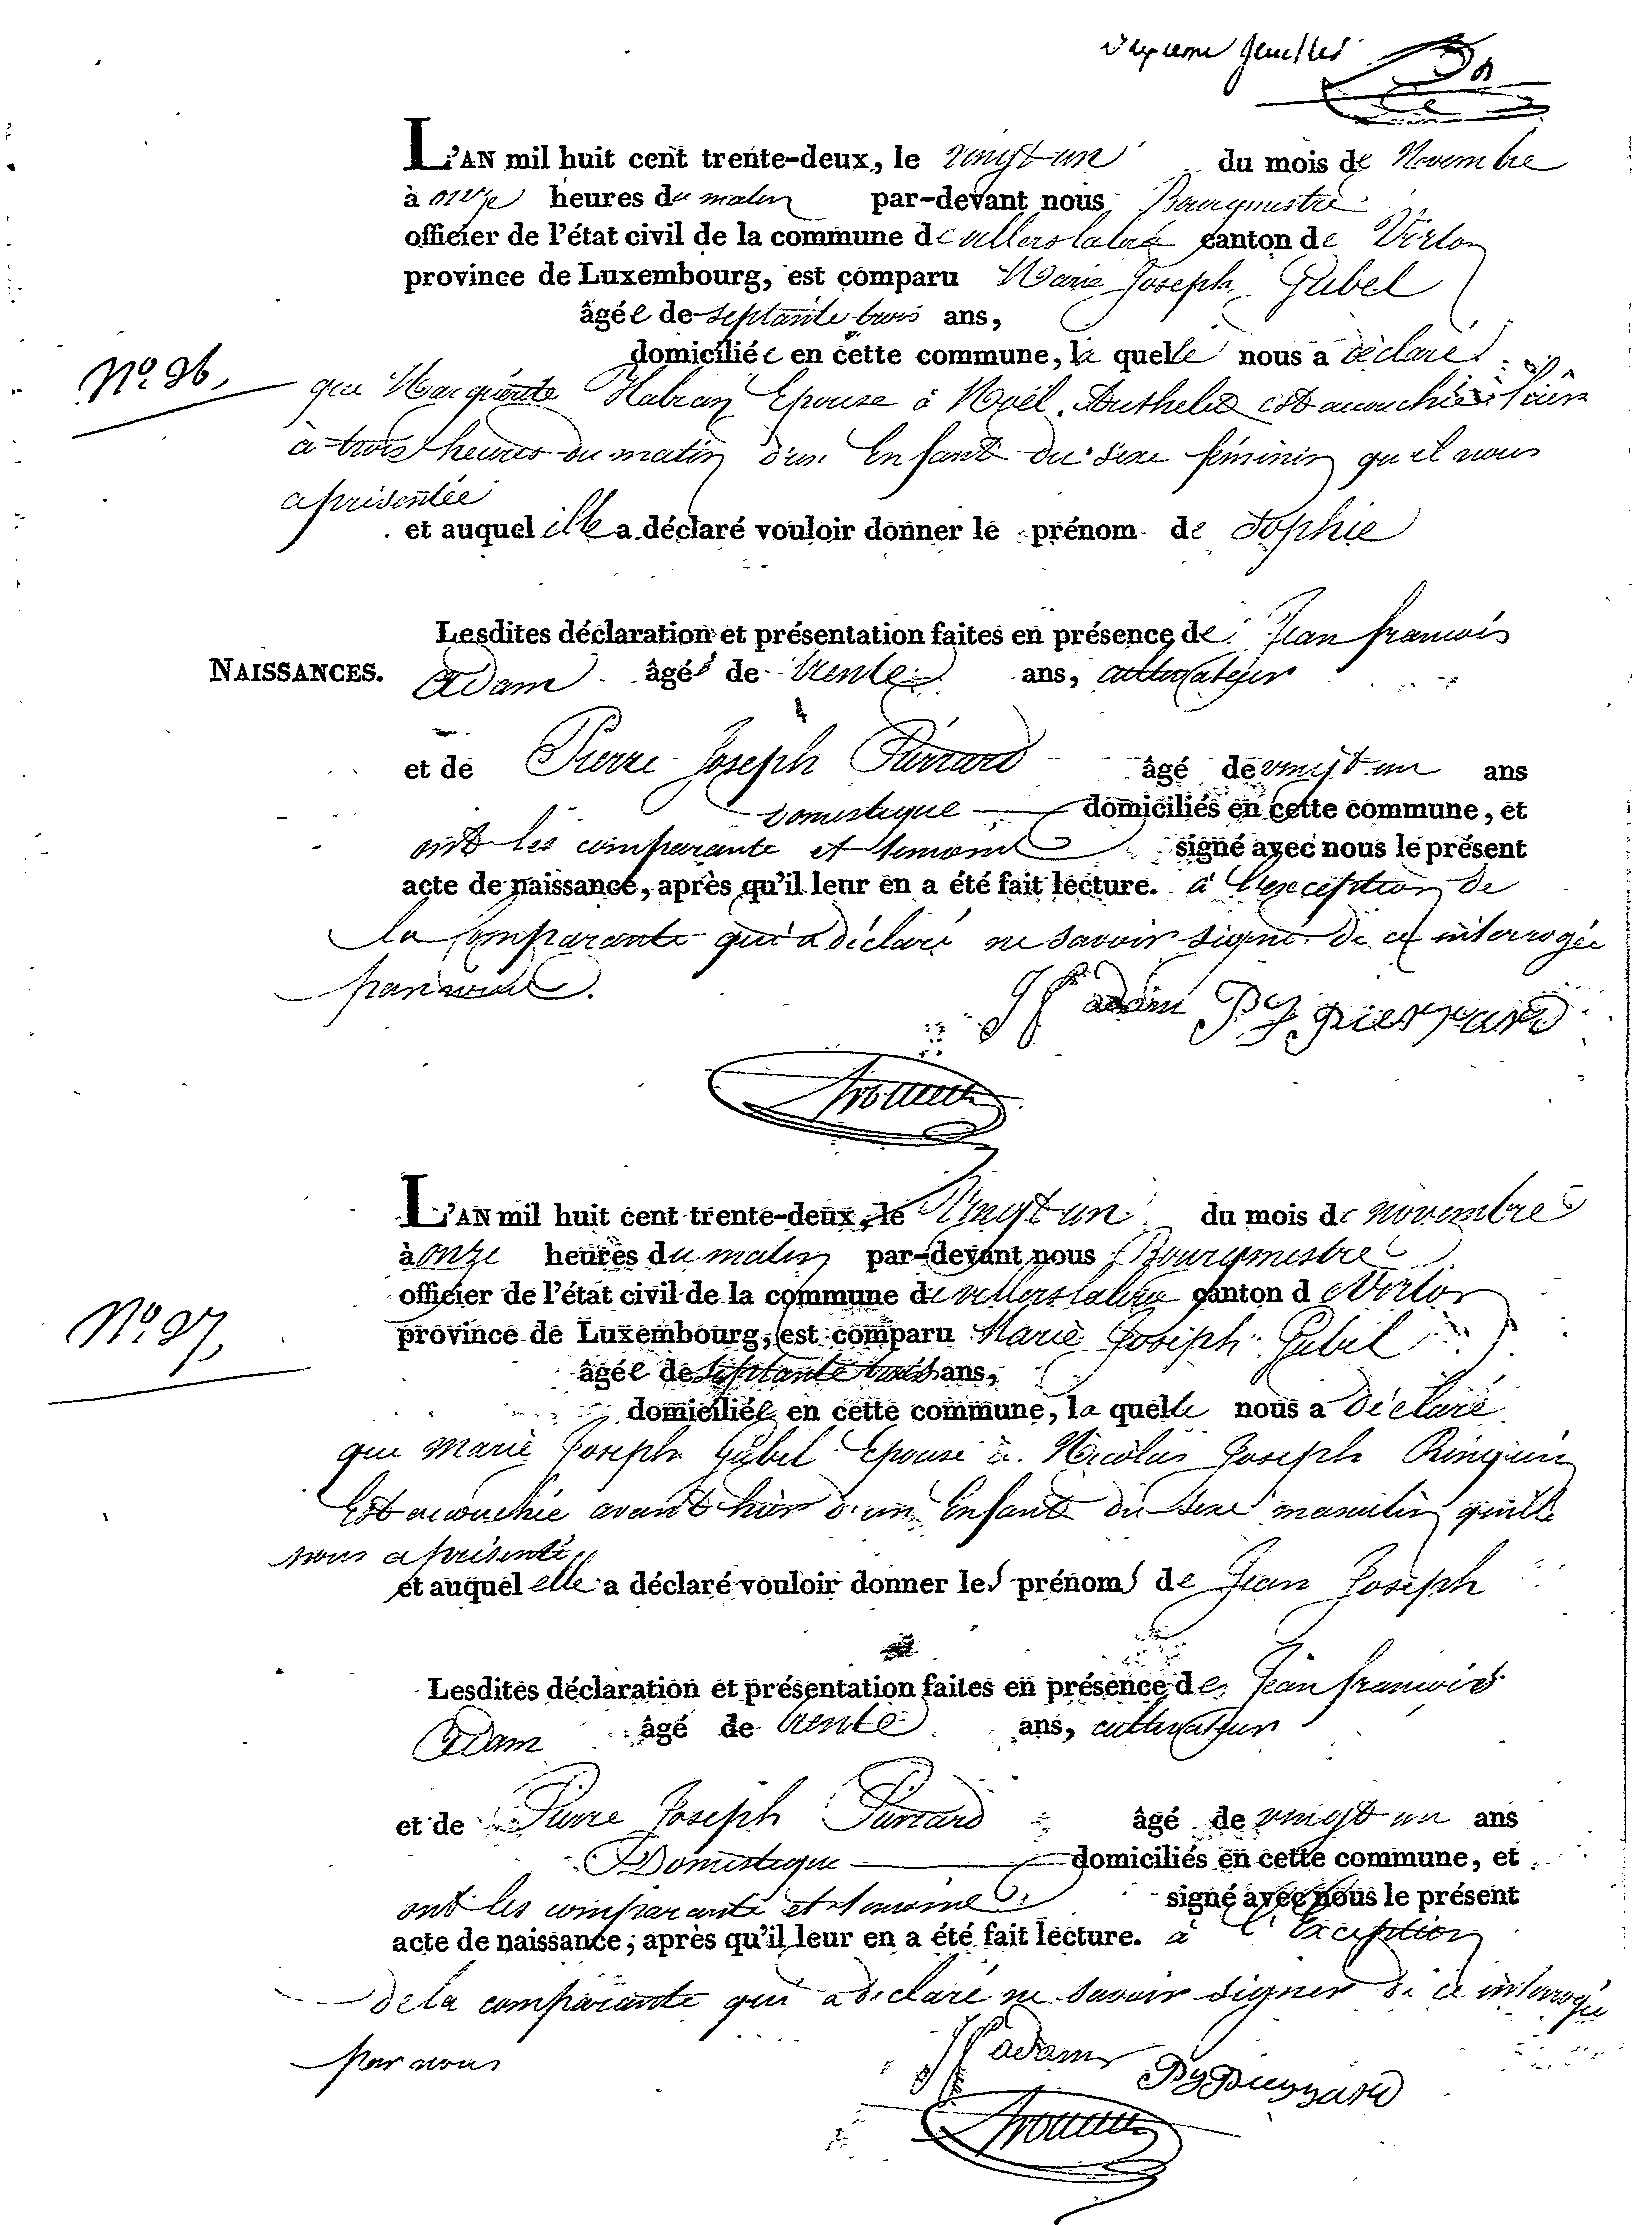 feuillet
L'AN mil huit cent trente-deux, le vingt un du mois de Novembre
à onze heures du matin par-devant nous Bourgmestre
officier de l'état civil de la commune de villerslaloue canton de Virton
province de Luxembourg, est comparu Marie Joseph Gubel
âgée de septante trois ans,
domiciliée en cette commune, la quelle nous a déclaré
N.o 26.
que Marguerite Habran Epouse à Noël Authelet est accouchée hier
à trois heures du matin d'un Enfant du sexe féminin qu'il nous
a présentée
et auquel elle a déclaré vouloir donner le prénom de Sophie
Lesdites déclaration et présentation faites en présence de Jean francois
NAISSANCES. Adam âgé de trente ans, cultivateur
et de Pierre Joseph Pierrard âgé de vingt un ans
domestique domiciliés en cette commune, et
ont les comparante et temoins signé avec nous le présent
acte de naissance, après qu'il leur en a été fait lecture. à l'exception de
la comparante qui a déclaré ne savoir signé de ce interrogée
par nous.
JF adam PJ pierrard
L'AN mil huit cent trente-deux, le vingt un du mois de novembre
à onze heures du matin par-devant nous Bourgmestre
officier de l'état civil de la commune de villerslaloue canton d Virton
N.o 27,
province de Luxembourg, est comparu Marie Joseph Gubel
âgée de septante trois ans,
domiciliée en cette commune, la quelle nous a déclaré
que marie Joseph Gubel Epouse à Nicolas Joseph
Est accouchée avant hier d'un Enfant du sexe masculin qu'elle
nous a présenté
et auquel elle a déclaré vouloir donner les prénoms de Jean Joseph
Lesdites déclaration et présentation faites en présence de Jean francois
Adam âgé de trente ans, cultivateur
et de Pierre Joseph Pierrard âgé de vingt un ans
Domestique domiciliés en cette commune, et
ont les comparante et temoins signé avec nous le présent
acte de naissance, après qu'il leur en a été fait lecture. à l'Exception
de la comparante qui a déclaré ne savoir signer de ce interrogée
par nous
JF adam
PJ Pierrard